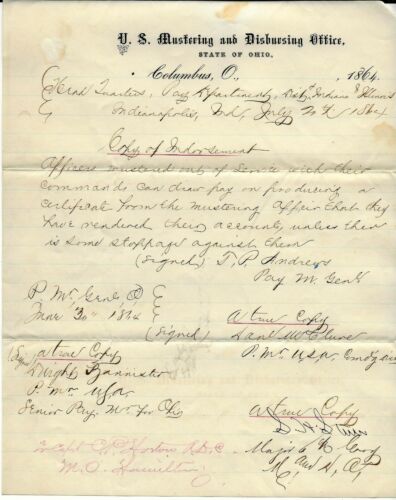 U. S. Mustering and Disbursing Office,
STATE OF OHIO.
Columbus, O., 1864.
Head Quarters, Pay Department, Dist. Indiana & Illinois
Indianapolis, Ind, July 20th 1864
Copy of Indorsement
Officers mustered out of service with their
commands can draw pay on producing a
certificate from the mustering officer that they
have rendered their accounts, unless there
is some stoppage against them
(Signed) T. P. Andrews
Pay M. Genl
P. Mr. Genl. O
June 30th 1864
A true Copy
(Signed) Danl McClure
P. Mr. U.S.A.
(Signed) A true Copy
Dwight Bannister
P. Mr. U.S.A.
Senior Pay Mr. for Ohio
A true Copy
Major 6th Cavy
M. and D. O.
To Capt C. P. Horton A.D.C
M. O. Hamilton